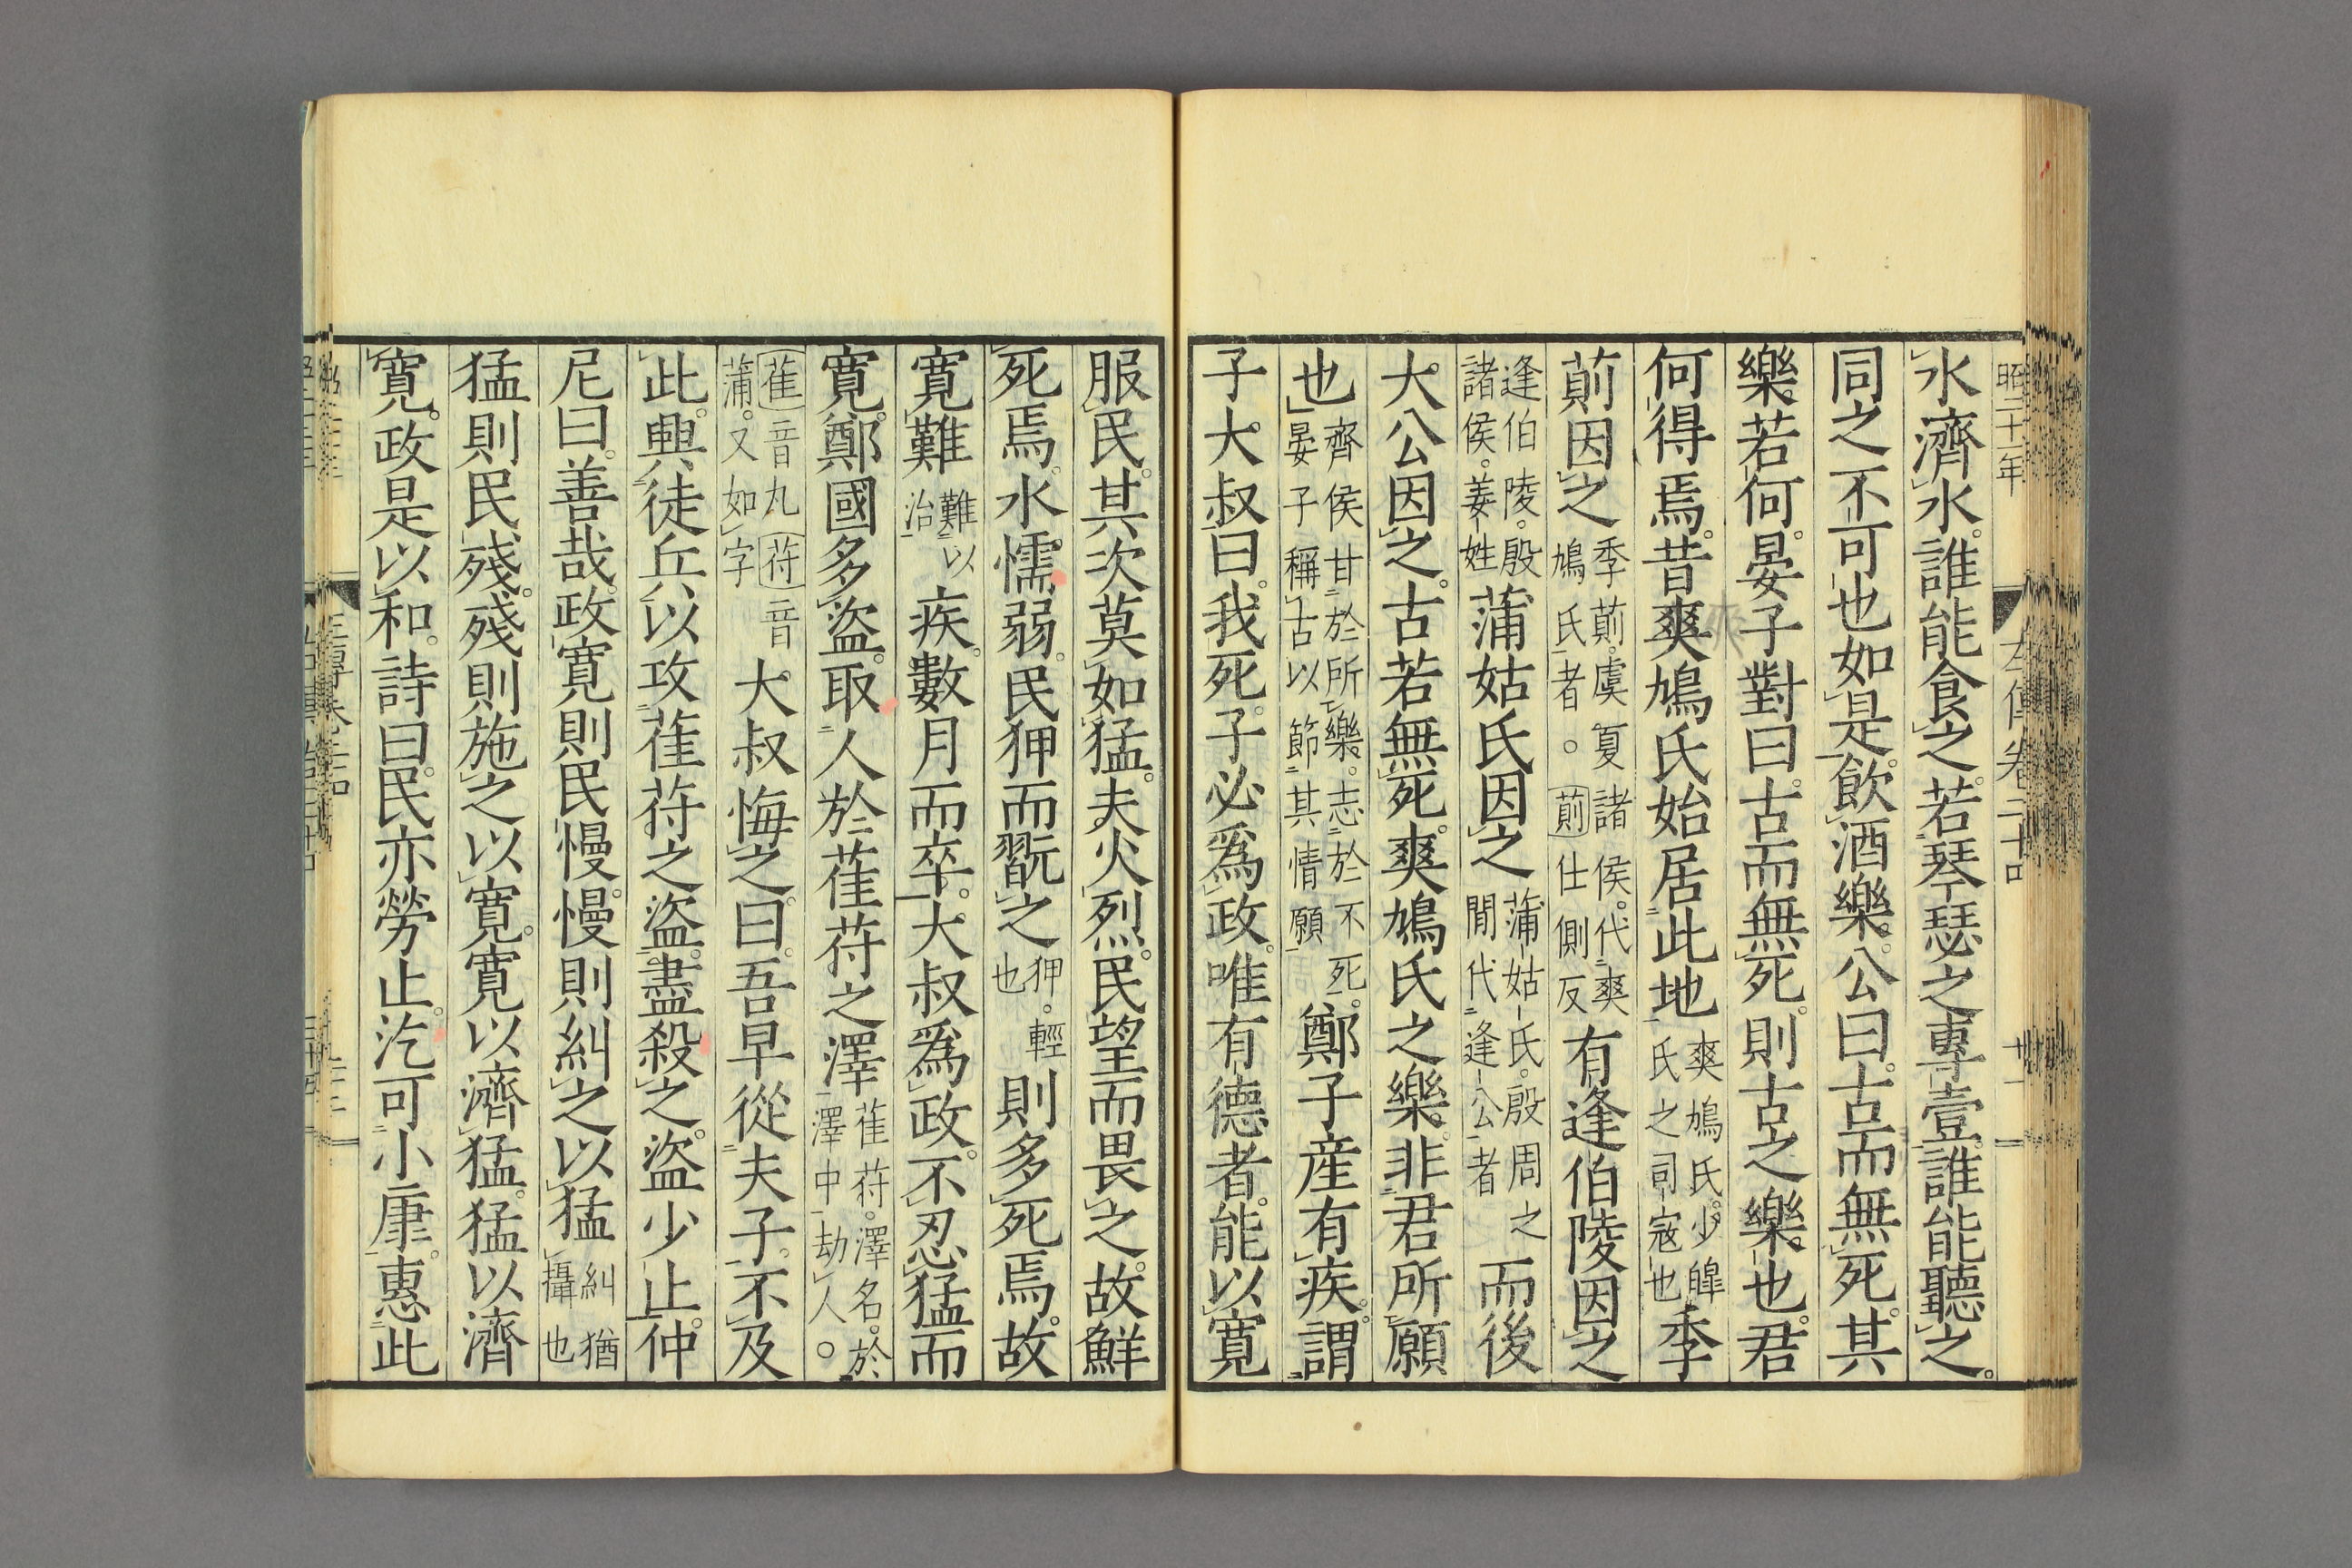 昭二十年 左傳卷二十四 廿一
水濟水。誰能食之。若琴瑟之專壹。誰能聽之。
同之不可也如是。飮酒樂。公曰。古而無死。其
樂若何。晏子對曰。古而無死。則古之樂也。君
何得焉。昔爽鳩氏始居此地爽鳩氏。少皥氏之司寇也季
萴因之季萴。虞夏諸侯。代爽鳩氏者。○萴仕側反有逢伯陵因之
逢伯陵。殷諸侯。姜姓蒲姑氏因之蒲姑氏。殷周之閒代逢公者而後
大公因之。古若無死。爽鳩氏之樂。非君所願
也齊侯甘於所樂。志於不死。晏子稱古以節其情願鄭子産有疾。謂
子大叔曰。我死。子必爲政。唯有德者。能以寬
服民。其次莫如猛。夫火烈。民望而畏之。故鮮
死焉。水懦弱。民狎而翫之狎。輕也則多死焉。故
寬難難以治疾。數月而卒。大叔爲政。不忍猛而
寬。鄭國多盜。取人於萑苻之澤萑苻。澤名。於澤中劫人。○
萑音丸苻音蒲。又如字大叔悔之。曰。吾早從夫子。不及
此。興徒兵以攻萑苻之盜。盡殺之。盜少止。仲
尼曰。善哉。政寬則民慢。慢則糾之以猛糾猶攝也
猛則民殘。殘則施之以寬。寬以濟猛。猛以濟
寬。政是以和。詩曰。民亦勞止。汔可小康。惠此